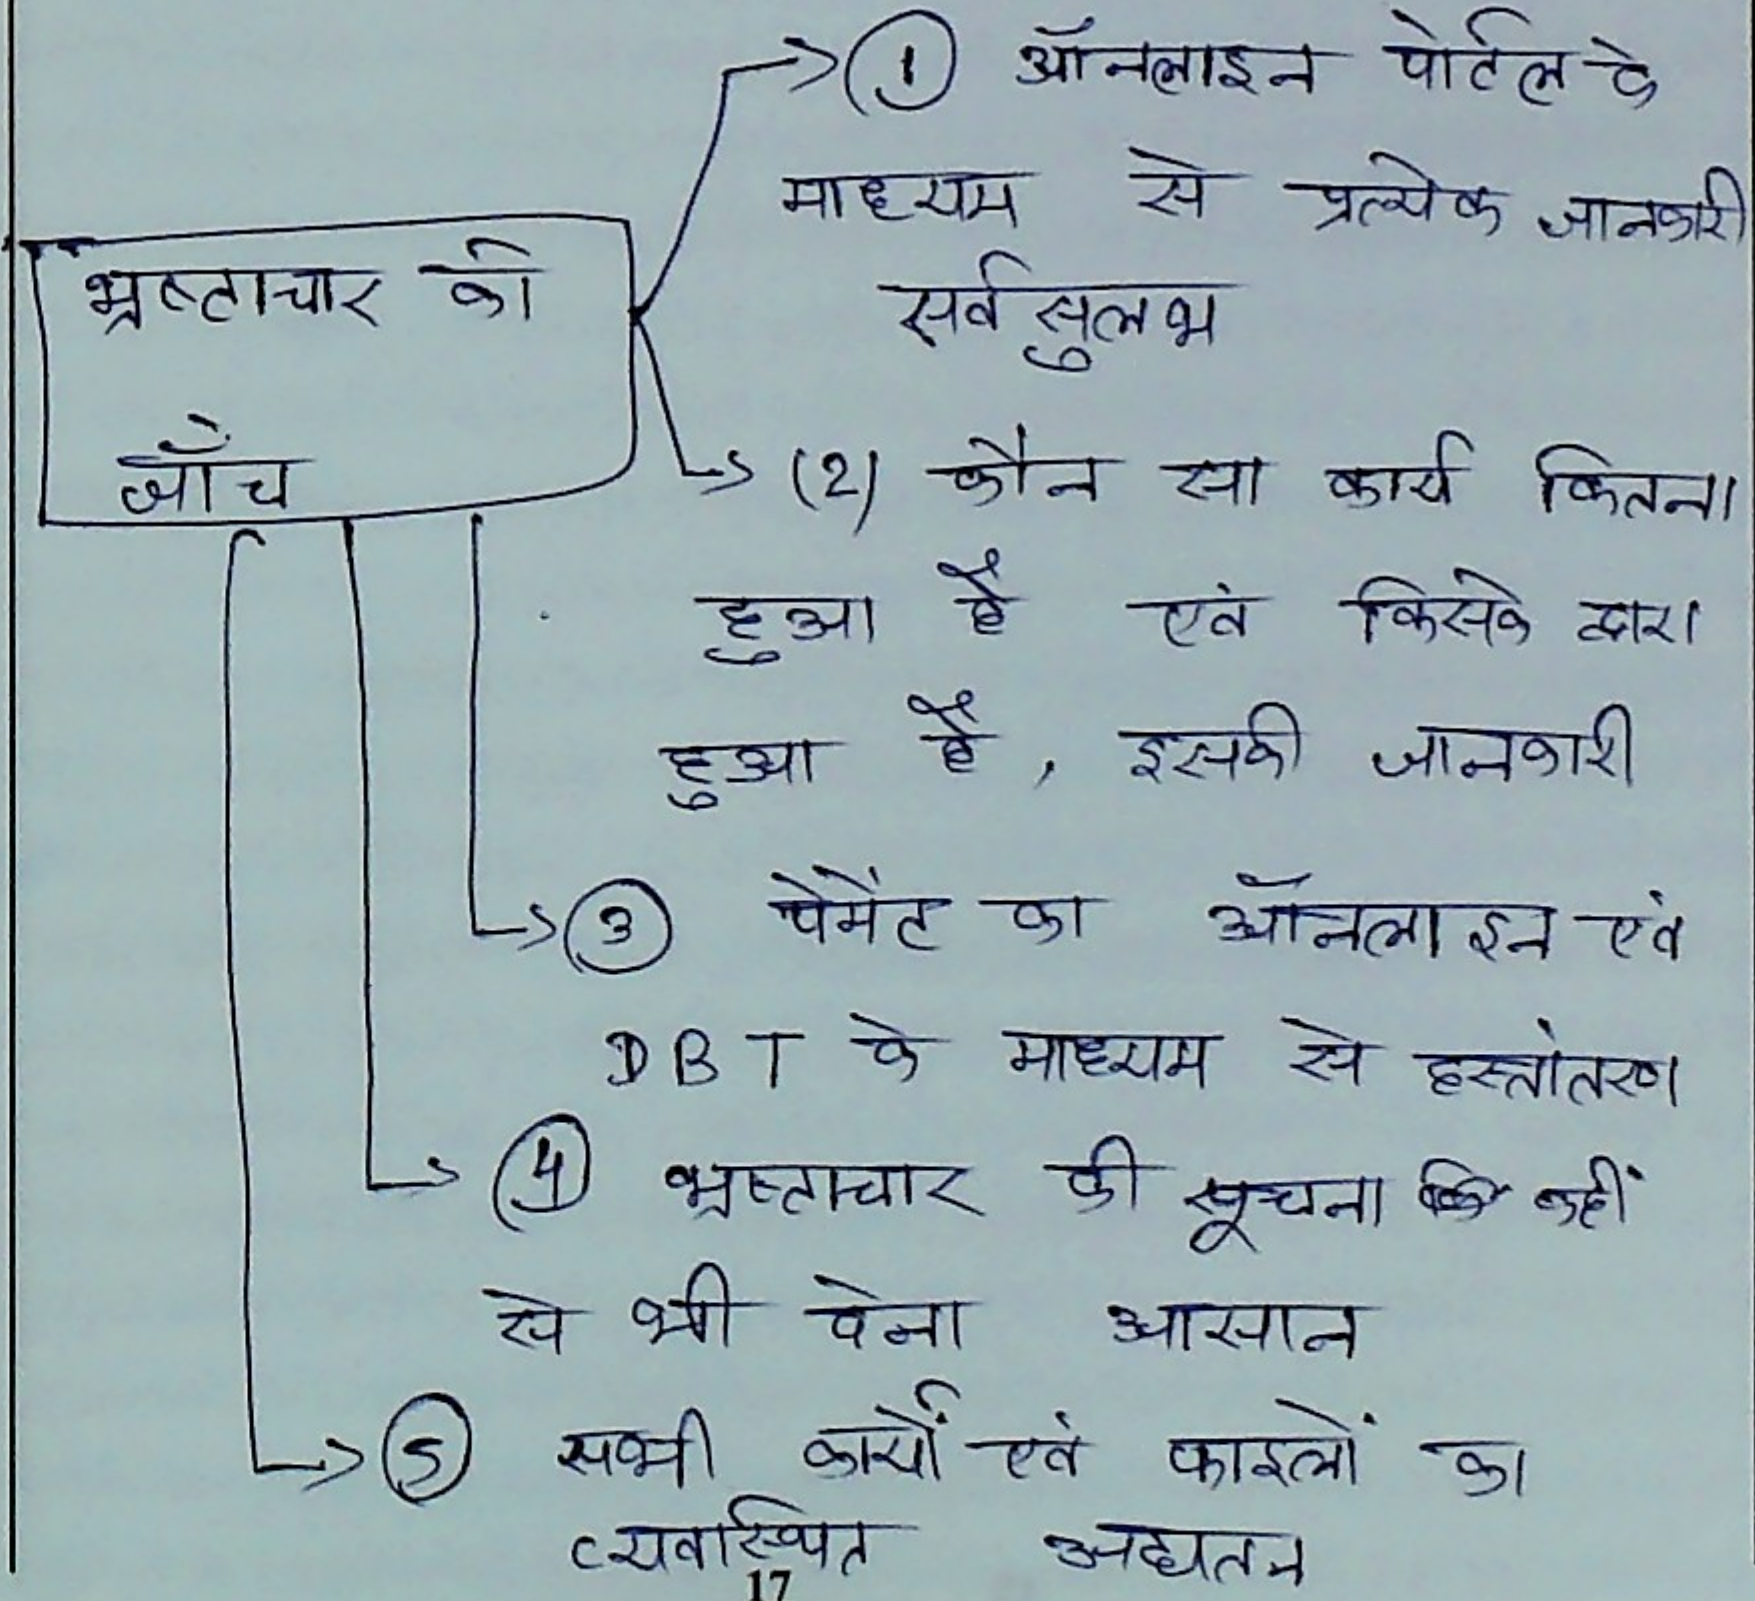 भ्रष्टाचार की
जाँच
① ऑनलाइन पोर्टल के
माध्यम से प्रत्येक जानकारी
सर्वसुलभ
(2) कौन सा कार्य कितना
हुआ है एवं किसके द्वारा
हुआ है, इसकी जानकारी
③ पेमेंट का ऑनलाइन एवं
DBT के माध्यम से हस्तांतरण
④ भ्रष्टाचार की सूचना कहीं
से भी देना आसान
⑤ सभी कार्यों एवं फाइलों का
व्यवस्थित अद्यतन
17